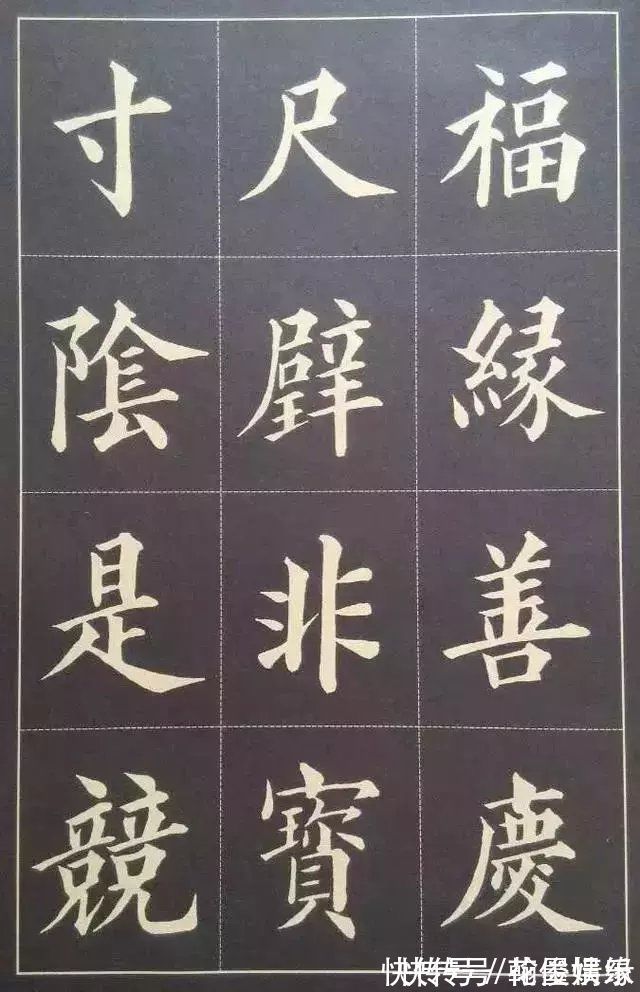 福緣善慶
尺璧非寶
寸陰是競
快转号//翰墨情缘